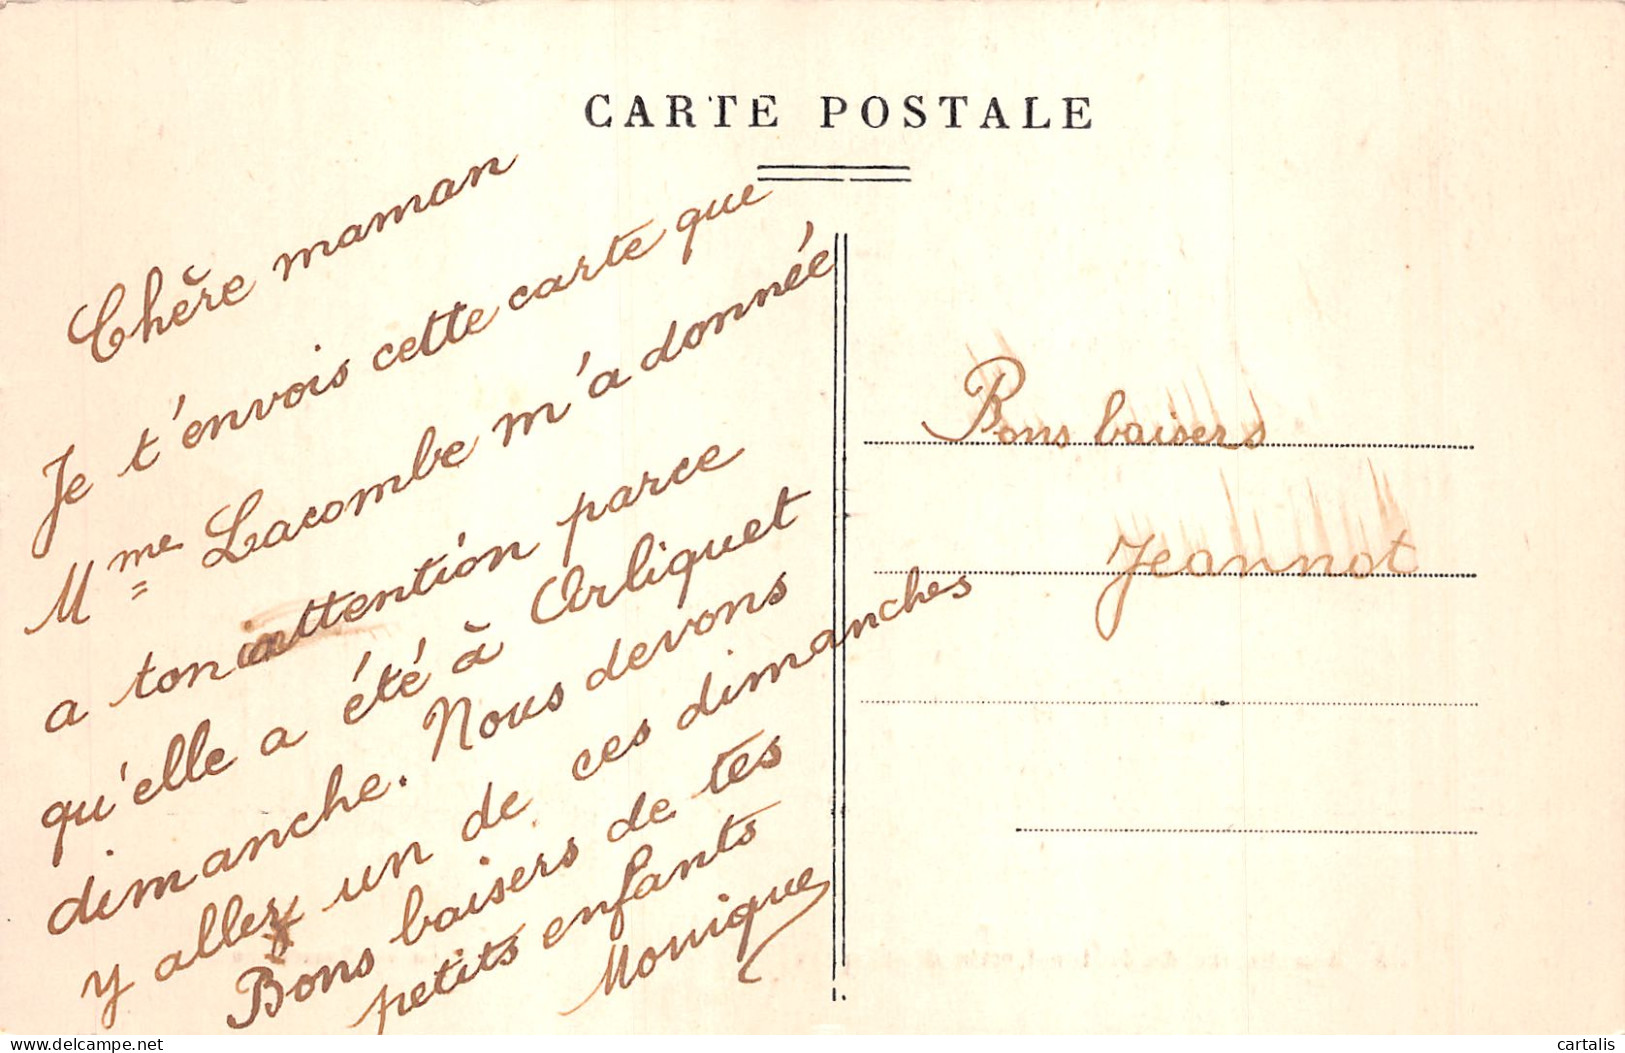 CARTE POSTALE
Chère maman
Je t'envois cette carte que
Mme Lacombe m'a donnée
a ton attention parce
qu'elle a été à Arliquet
dimanche. Nous devons
y aller un de ces dimanches
Bons baisers de tes
petits enfants
Monique
Bons baisers
Jeannot
delcampe.net
cartalis